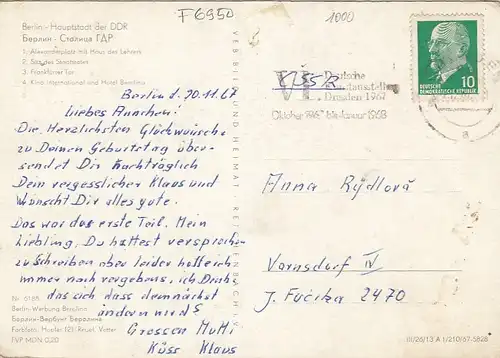 Berlin - Hauptstadt der DDR
Берлин - Столица ГДР
1. Alexanderplatz mit Haus des Lehrers
2. Sitz des Staatsrates
3. Frankfurter Tor
4. Kino International und Hotel Berolina
F6950
1000
Berlin d. 20.11.67
Liebes Annchen!
Die Herzlichsten Glückwünsche
zu Deinen Geburtstag über-
sendet Dir Nachträglich
Dein vergesslicher Klaus und
Wünscht Dir alles gute.
Das war das erste Teil. Mein
Liebling, Du hattest versprochen
zu Schreiben aber leider hoffe ich
immer noch vergebens, ich Denke
das sich dass demnächst
ändern wird
Grossen
Küss Klaus
VEB BILD UND HEIMAT REICHENBACH I. V.
VI. Deutsche
Kunstausstellung
Dresden 1967
Oktober 1967 bis Januar 1968
10
DEUTSCHE
DEMOKRATISCHE REPUBLIK
a
Anna Rýdlová
Varnsdorf IV
J. Fučíka 2470
Nr. 6188
Berlin-Werbung Berolina
Берлин-Вербунг Беролина
EVP MDN 0,20
III/26/13 A 1/210/67 5828